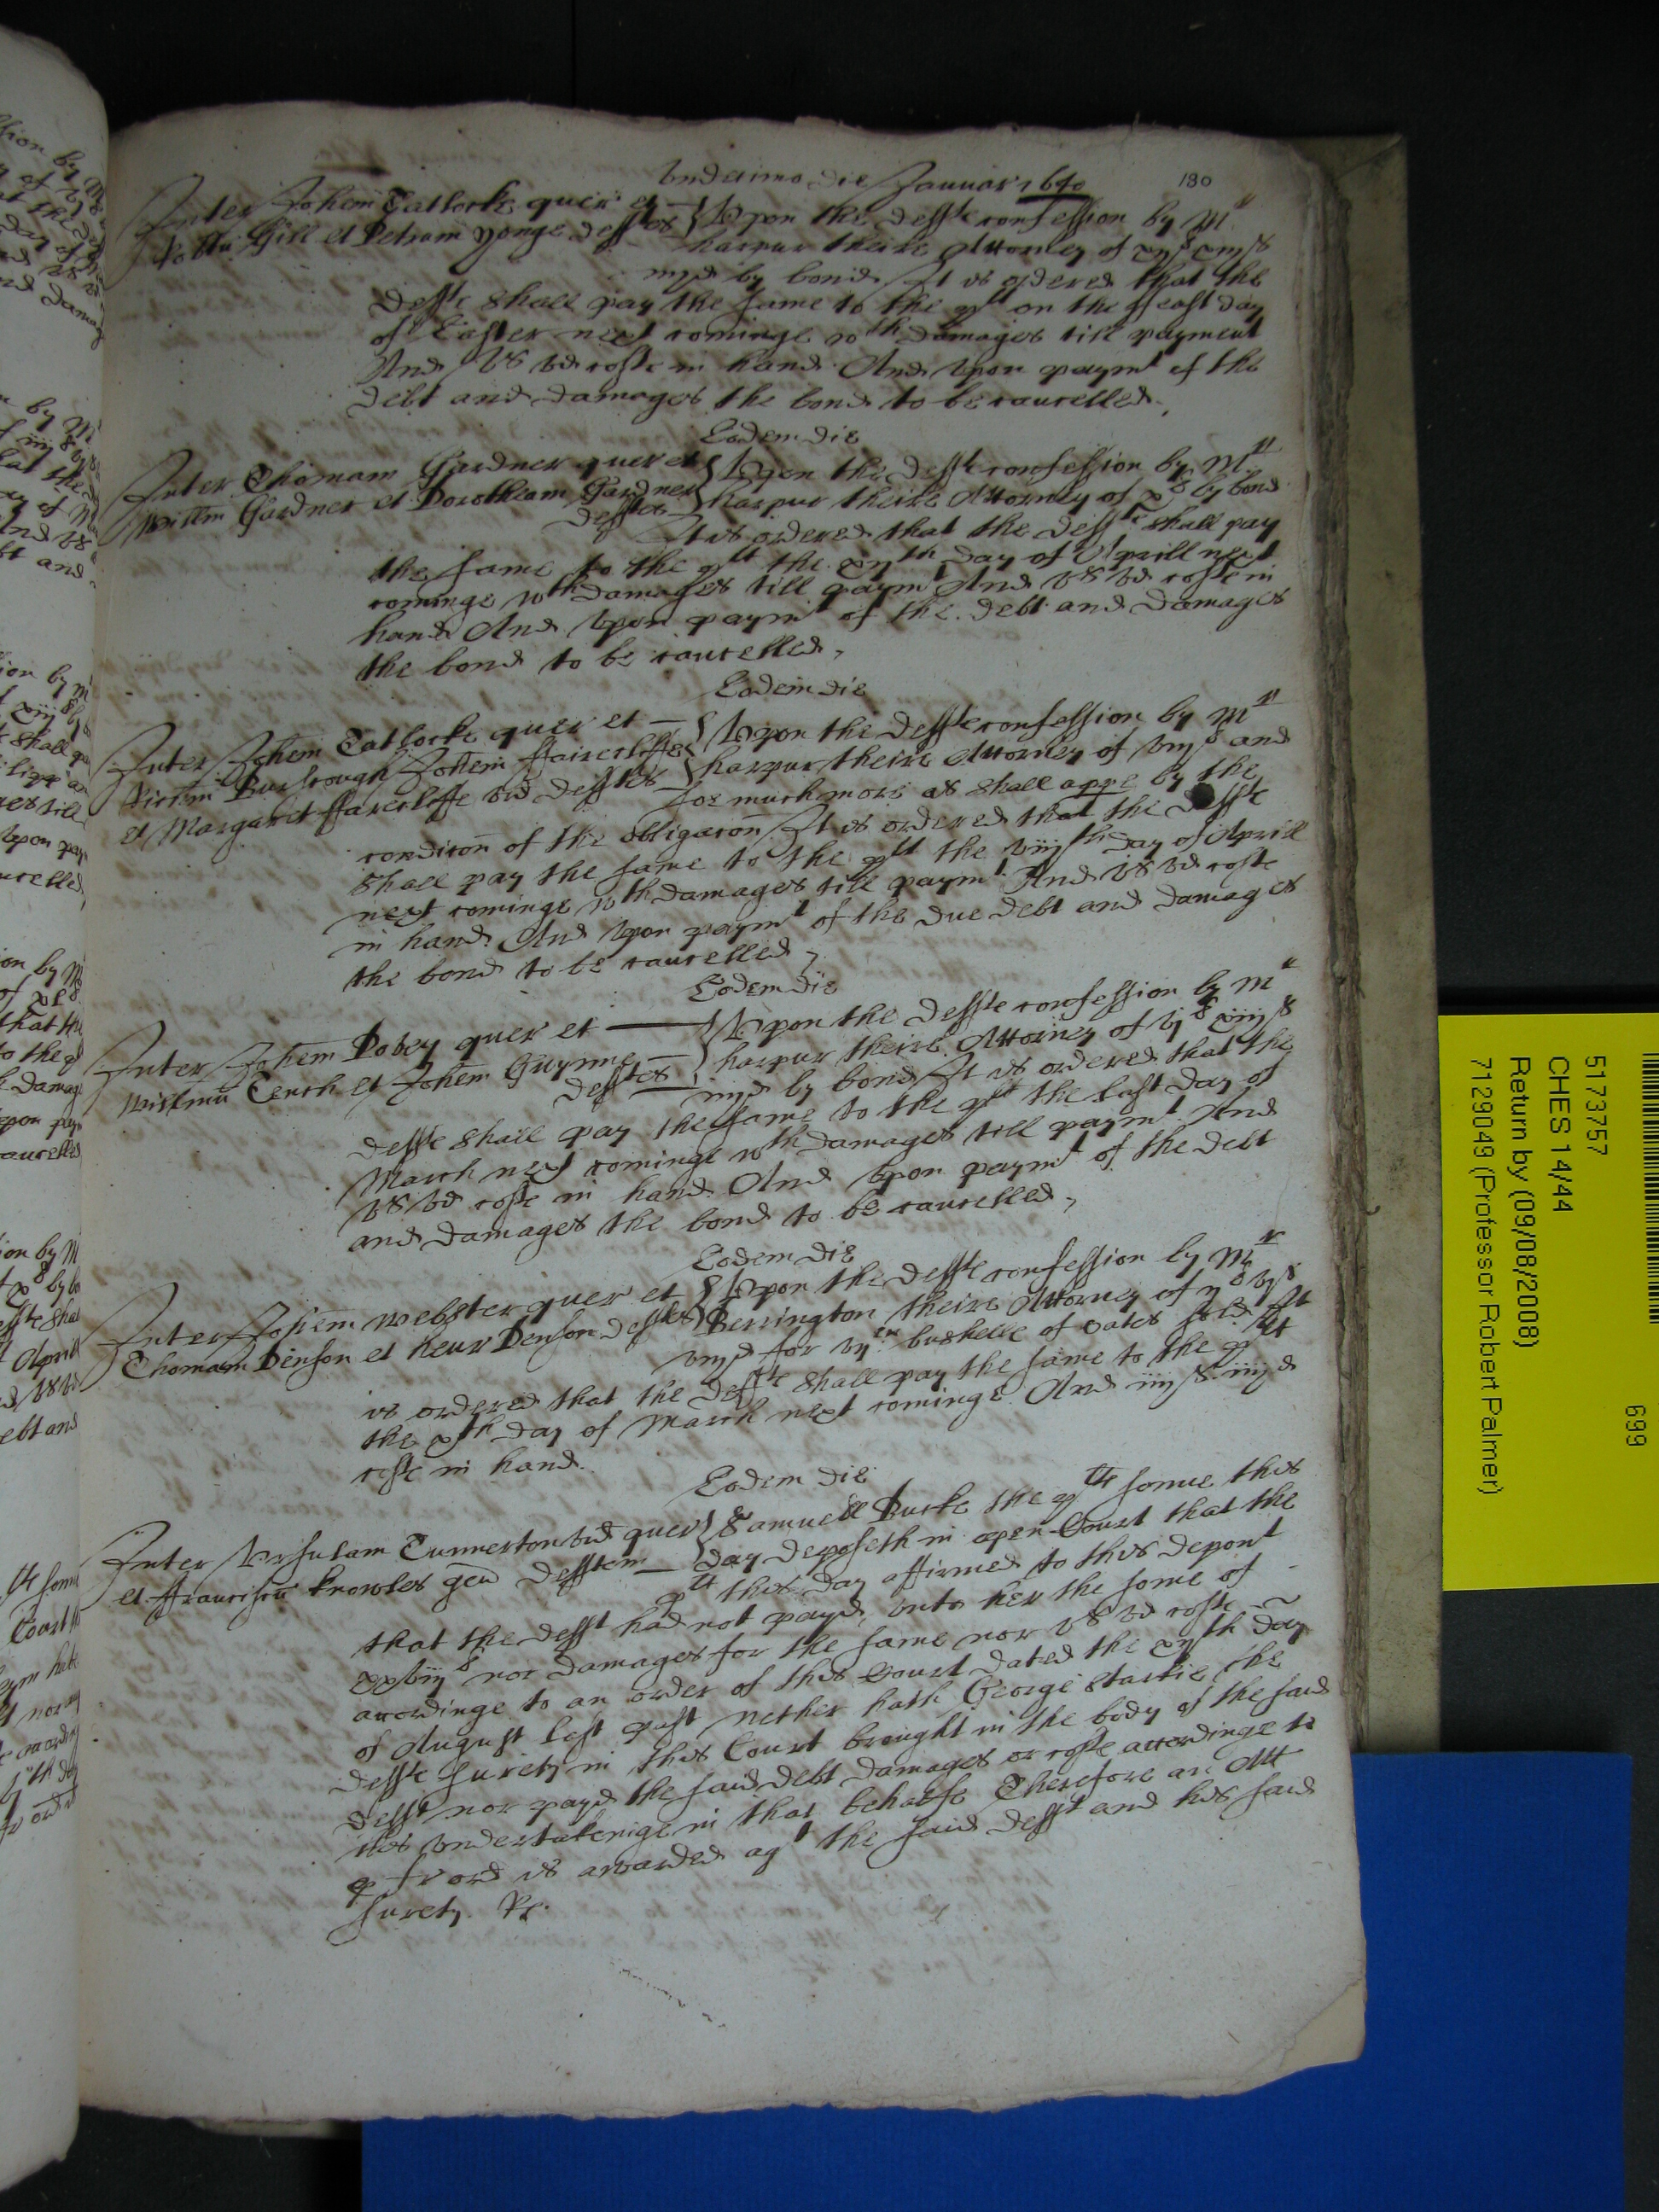 undecimo die Januar' 1640
180
Inter Johem Tatlocke quer' et Upon the defftes confession by Mr
Gill et Petrum Yonge defftes harpur theire Attorney of
iiijd by bond It is ordered that the
defftes shall pay the same to the plt on the ffeast day
of Easter next cominge wth damages till payment
And vs vd coste in hand And upon paymt of the
debt and damages the bond to be cancelled.
Eodem die
Inter Thomam Gardner quer et Upon the defftes confession by Mr
Willm Gardner et Dorotheam Gardner harpur theire Attorney of xl by bond
defftes It is ordered that the defftes shall pay
the same to the plt the xijth day of Aprill next
cominge wth damages till paymt And vs vd coste in
hand And upon paymt of the debt and damages
the bond to be cancelled,
Eodem die
Inter Johem Tatlocke quer et Upon the defftes confession by Mr
Burscough Johem ffairecliffe harpur theire Attorney of and
et Margaret ffarecliffe vid defftes soe much more as shall appe by the
condicon of the obligacon It is ordered that the defftes
shall pay the same to the plt the viijth day of Aprill
next cominge wth damages till paymt And vs vd coste
in hand And upon paymt of the due debt and damages
the bond to be cancelled,
Eodem die
Inter Johem Dobey quer et Upon the defftes confession by Mr
Willmu Tench et Johem Guynne harpur theire Attorney of vjl xiijs
defftes iiijd by bond It is ordered that the
defftes shall pay the same to the plt the last day of
March next cominge wth damages till paymt And
vs vd coste in hand And upon paymt of the debt
and damages the bond to be cancelled,
Eodem die
Inter Josem Webster quer et Upon the defftes confession by Mr
Thomam Denson et henr Denson defftes Berrington theire Attorney of
viijd for bushells of oates sold It
is ordered that the defftes shall pay the same to the plt
the xth day of March next cominge And iiijs iiijd
coste in hand.
Eodem die
Inter Ursulam Tunnerton vid quer Samuell Burke the plts sonne this
et ffranciscu Knowles gen defftem day deposeth in open Court that the
plt this day affirmed to this depont
that the defft had not payd unto her the some of
xxviijl nor damages for the same nor vs vd coste
accordinge to an order of this Court dated the xijth day
of August last past nether hath George Starkie the
deffts surety in this Court brought in the body of the said
defft nor payd the said debt damages or coste accordinge to
his undertakeinge in that behalfe Therefore an Att
is awarded agt the said defft and his said
surety. &c.
5173757
CHES 14/44
Return by (09/08/2008)
7129049 (Professor Robert Palmer)
699